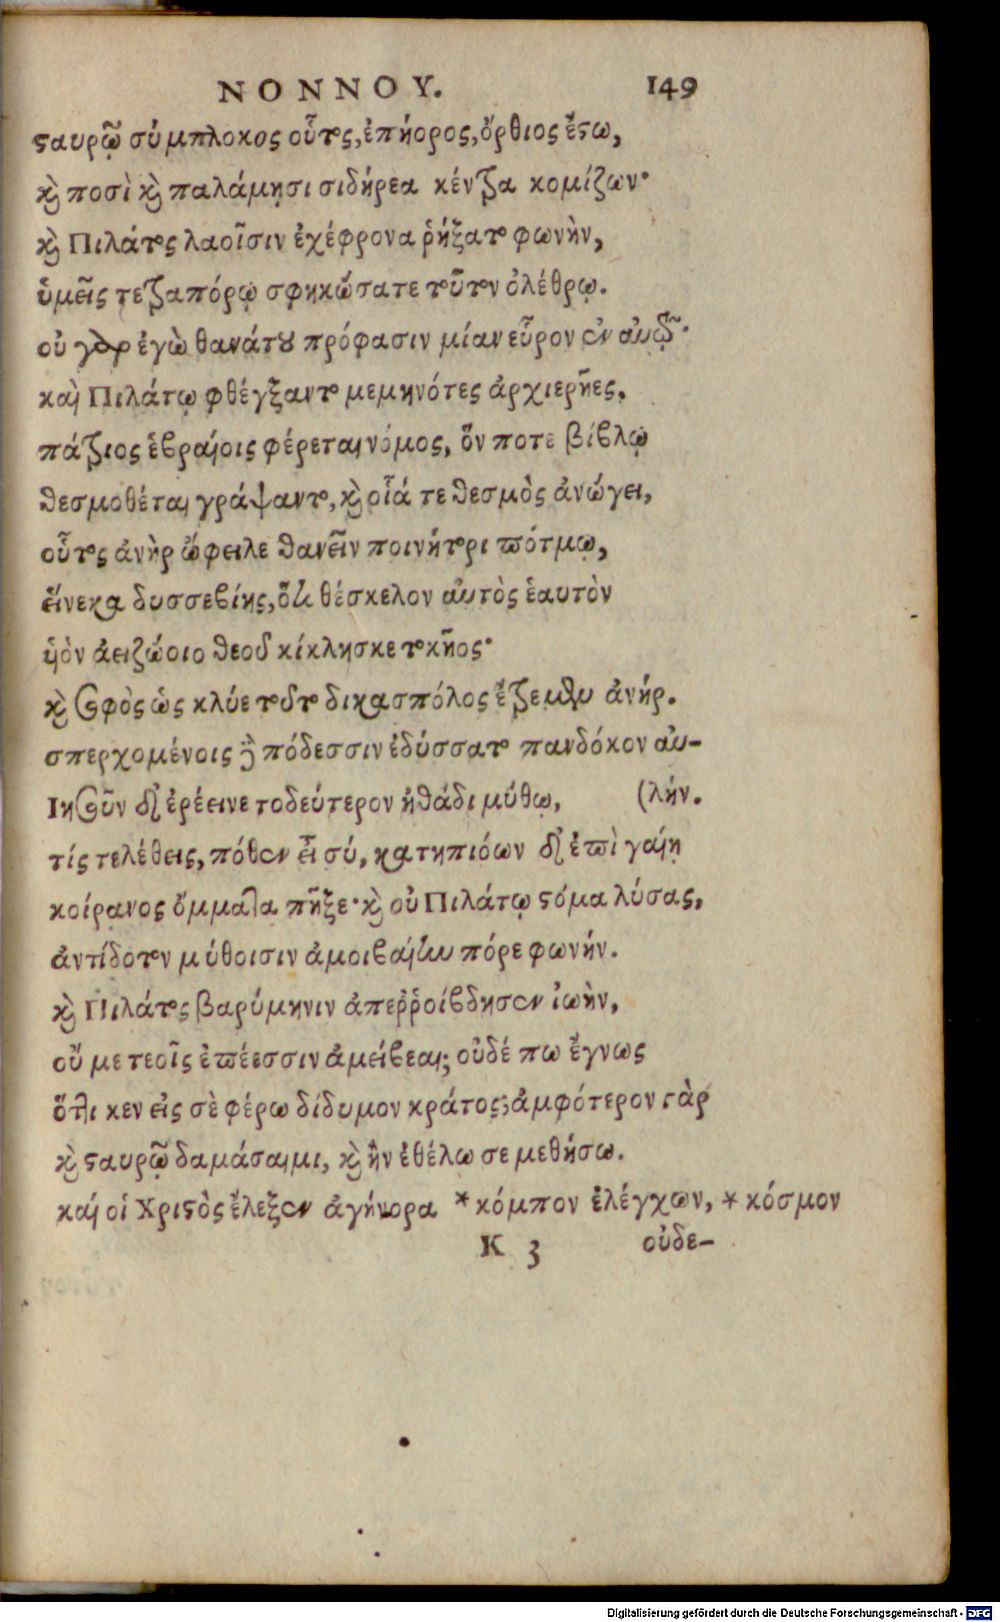 ΝΟΝΝΟΥ. 149
ϛαυρῷ σύμπλοκος οὗτος, ἐπήορος, ὄρθιος ἔϛω,
κὶ ποσὶ κὶ παλάμῃσι σιδήρεα κέντρα κομίζων·
κὶ Πιλάτος λαοῖσιν ἐχέφρονα ῥήξατο φωνὴν,
ὑμεῖς τετραπόρῳ σφηκώσατε τοῦτον ὀλέθρῳ.
οὐ γὰρ ἐγὼ θανάτου πρόφασιν μίαν εὗρον ἐν αὐτῷ·
καὶ Πιλάτῳ φθέγξαντο μεμηνότες ἀρχιερῆες.
πάτριος ἑβραίοις φέρεται νόμος, ὅν ποτε βίβλῳ
θεσμοθέται γράψαντο, κὶ οἷά τε θεσμὸς ἀνώγει,
οὗτος ἀνὴρ ὤφειλε θανεῖν ποινήτορι πότμῳ,
εἵνεκα δυσσεβίης, ὅτι θέσκελον αὐτὸς ἑαυτὸν
ὑὸν ἀειζώοιο θεοῦ κίκλησκε τοκῆος·
κὶ σοφὸς ὡς κλύε τοῦτο δικασπόλος ἔτρεμεν ἀνήρ.
σπερχομένοις δὲ πόδεσσιν ἐδύσσατο πανδόκον αὐ-
Ιησοῦν δ' ἐρέεινε τοδεύτερον ἠθάδι μύθῳ, (λήν.
τίς τελέθεις, πόθεν εἶ σύ, κατηπιόων δ' ἐπὶ γαίῃ
κοίρανος ὄμματα πῆξε· κὶ οὐ Πιλάτῳ ϛόμα λύσας,
ἀντίδοτον μύθοισιν ἀμοιβαίην πόρε φωνήν.
κὶ Πιλάτος βαρύμηνιν ἀπεῤῥοίβδησεν ἰωὴν,
οὔ με τεοῖς ἐπέεσσιν ἀμείβεαι; οὐδέ πω ἔγνως
ὅτι κεν εἰς σὲ φέρω δίδυμον κράτος; ἀμφότερον γὰρ
κὶ ϛαυρῷ δαμάσαιμι, κὶ ἢν ἐθέλω σε μεθήσω.
καί οἱ Χριϛὸς ἔλεξεν ἀγήνορα * κόμπον ἐλέγχων, * κόσμον
Κ 3 οὐδε-
Digitalisierung gefördert durch die Deutsche Forschungsgemeinschaft - DFG